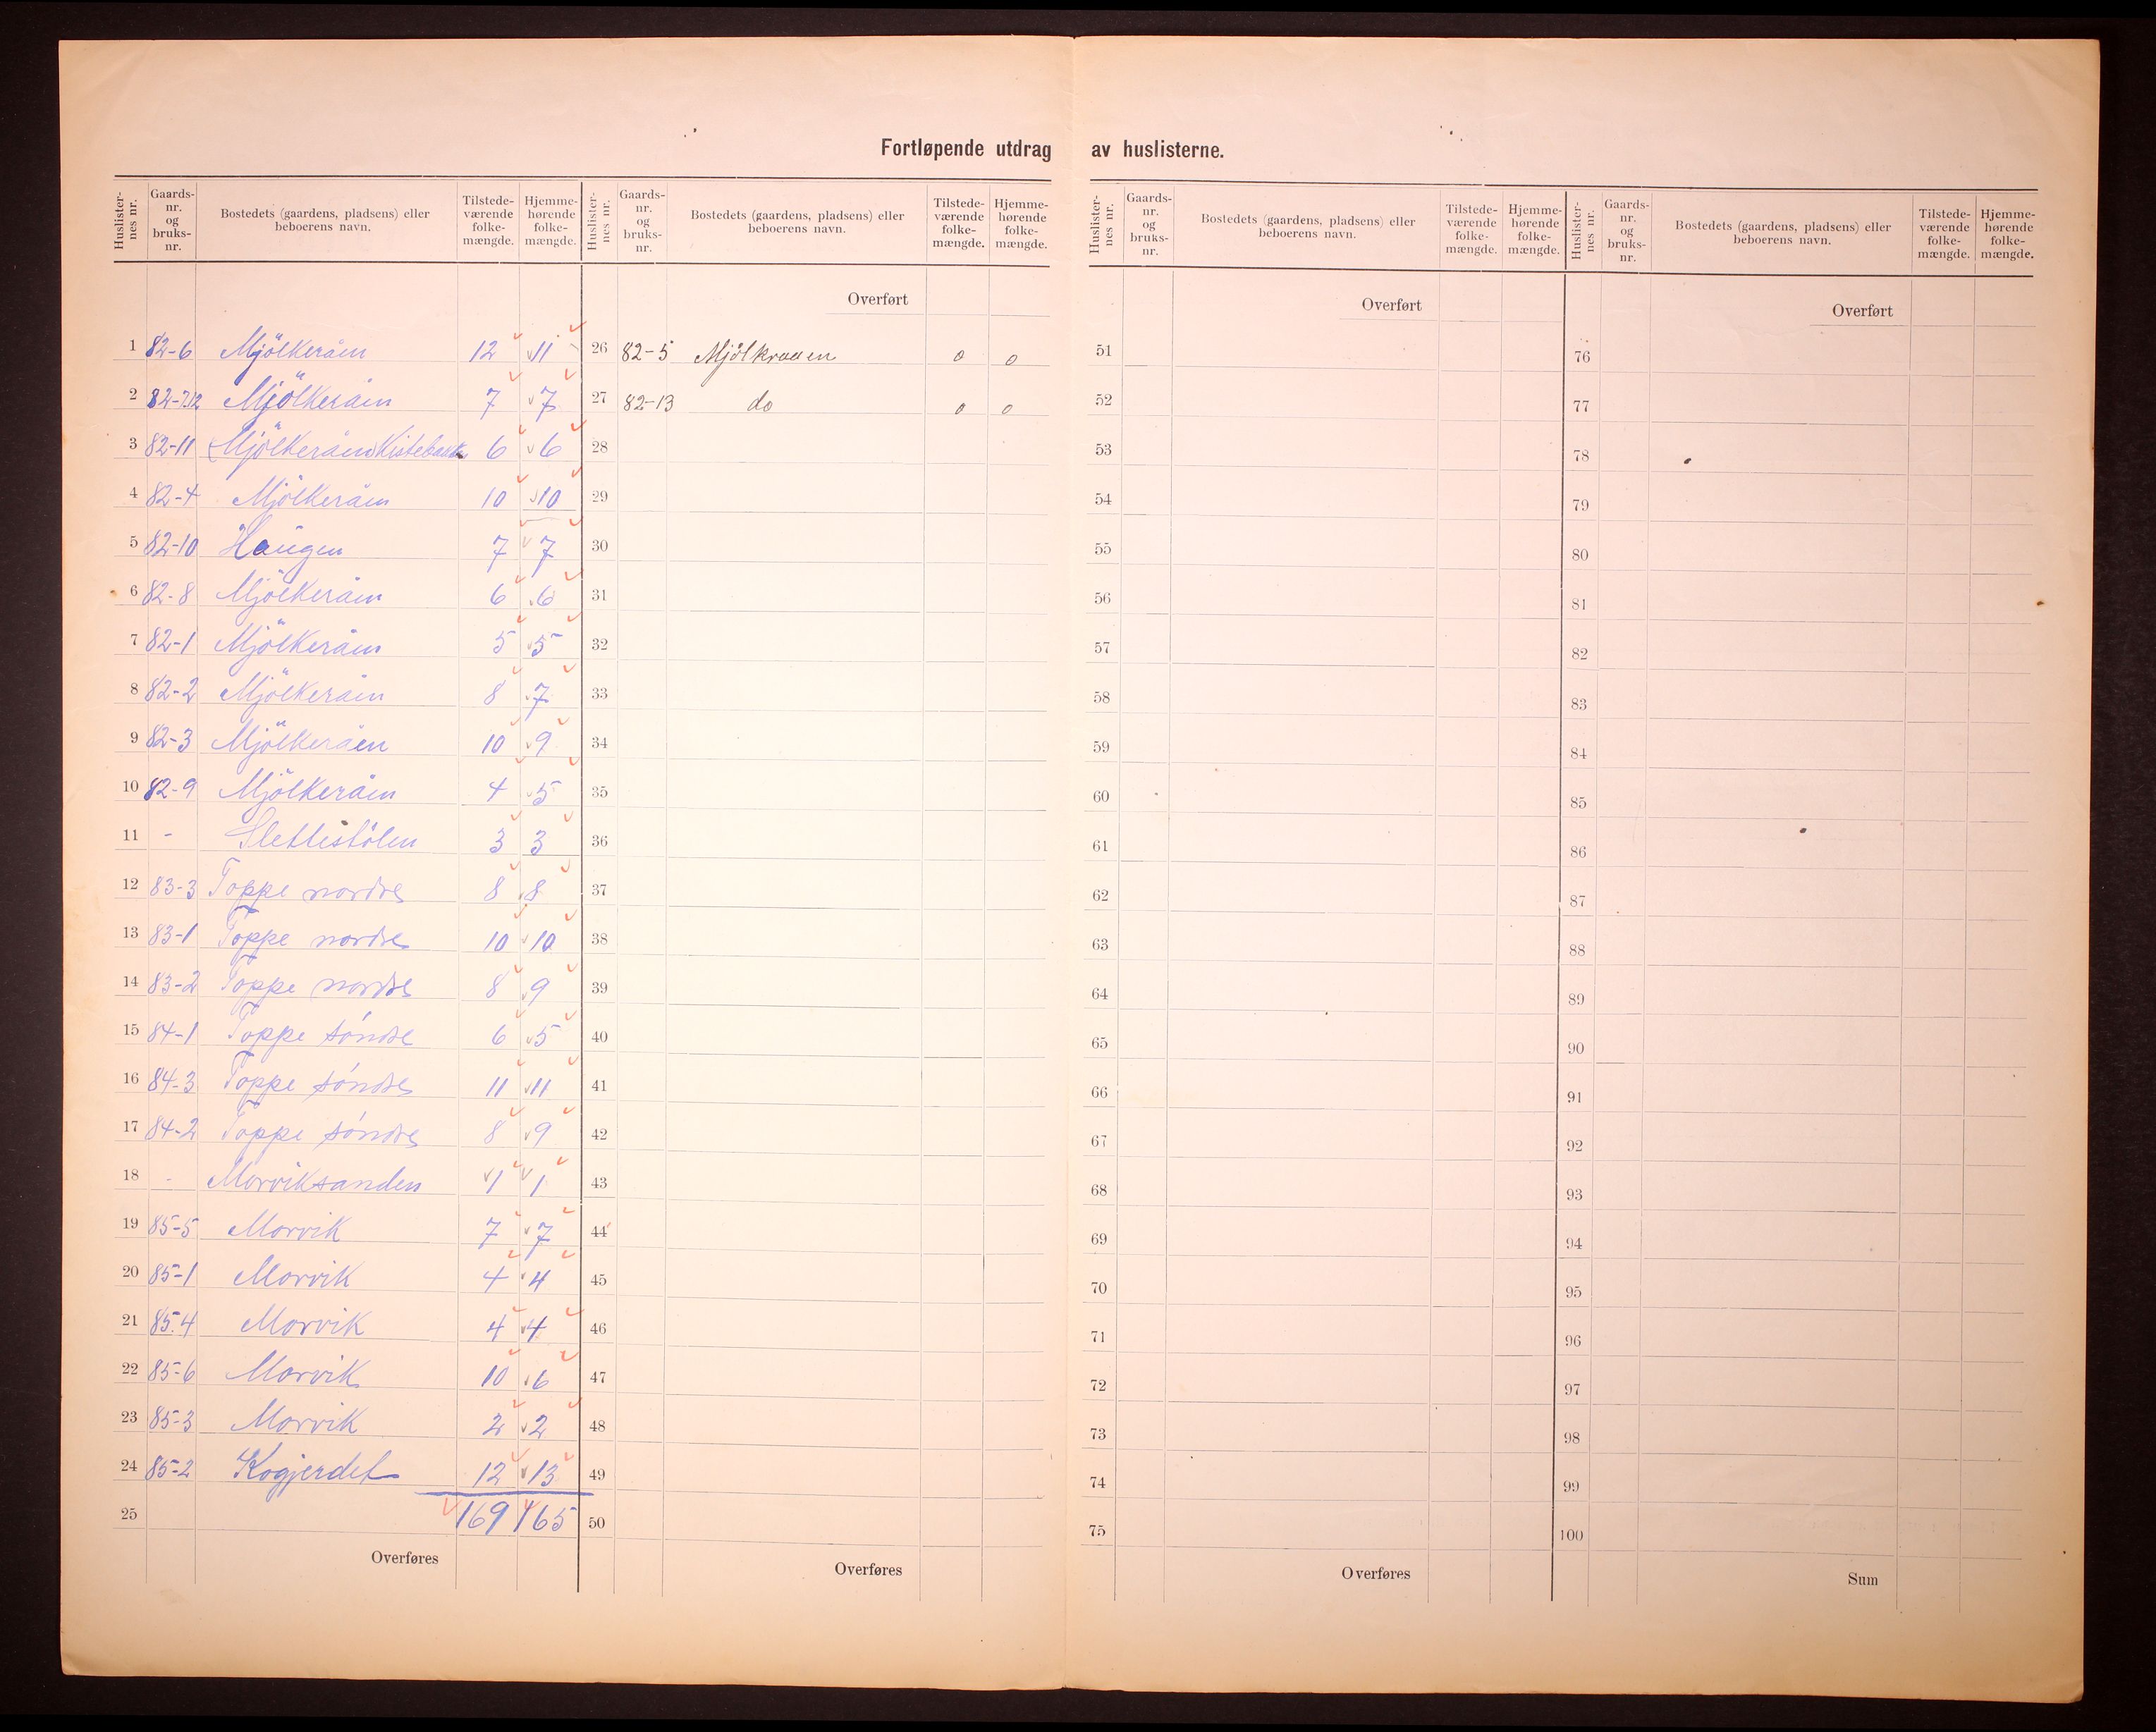 Fortløpende utdrag av huslisterne.
Huslister-nes nr. Gaards-nr. og bruks-nr. Bostedets (gaardens, pladsens) eller beboerens navn. Tilstede-værende folke-mængde. Hjemme-hørende folke-mængde. Huslister-nes nr. Gaards-nr. og bruks-nr. Bostedets (gaardens, pladsens) eller beboerens navn. Tilstede-værende folke-mængde. Hjemme-hørende folke-mængde. Huslister-nes nr. Gaards-nr. og bruks-nr. Bostedets (gaardens, pladsens) eller beboerens navn. Tilstede-værende folke-mængde. Hjemme-hørende folke-mængde. Huslister-nes nr. Gaards-nr. og bruks-nr. Bostedets (gaardens, pladsens) eller beboerens navn. Tilstede-værende folke-mængde. Hjemme-hørende folke-mængde.
Overført Overført Overført
1 82-6 Mjölkeråen 12 11 26 82-5 Mjölkraaen 0 0 51 76
2 82-7.12 Mjölkeråen 7 7 27 82-13 do 0 0 52 77
3 82-11 Mjölkeråen 6 6 28 53 78
4 82-4 Mjölkeråen 10 10 29 54 79
5 82-10 Haugen 7 7 30 55 80
6 82-8 Mjölkeråen 6 6 31 56 81
7 82-1 Mjölkeråen 5 5 32 57 82
8 82-2 Mjölkeråen 8 7 33 58 83
9 82-3 Mjölkeråen 10 9 34 59 84
10 82-9 Mjölkeråen 4 5 35 60 85
11 - Slettestölen 3 3 36 61 86
12 83-3 Toppe nordre 8 8 37 62 87
13 83-1 Toppe nordre 10 10 38 63 88
14 83-2 Toppe nordre 8 9 39 64 89
15 84-1 Toppe söndre 6 5 40 65 90
16 84-3 Toppe söndre 11 11 41 66 91
17 84-2 Toppe söndre 8 9 42 67 92
18 - Morviksanden 1 1 43 68 93
19 85-5 Morvik 7 7 44 69 94
20 85-1 Morvik 4 4 45 70 95
21 85-4 Morvik 4 4 46 71 96
22 85-6 Morvik 10 6 47 72 97
23 85-3 Morvik 2 2 48 73 98
24 85-2 Kogjerdet 12 13 49 74 99
25 169 165 50 75 100
Overføres Overføres Overføres Sum